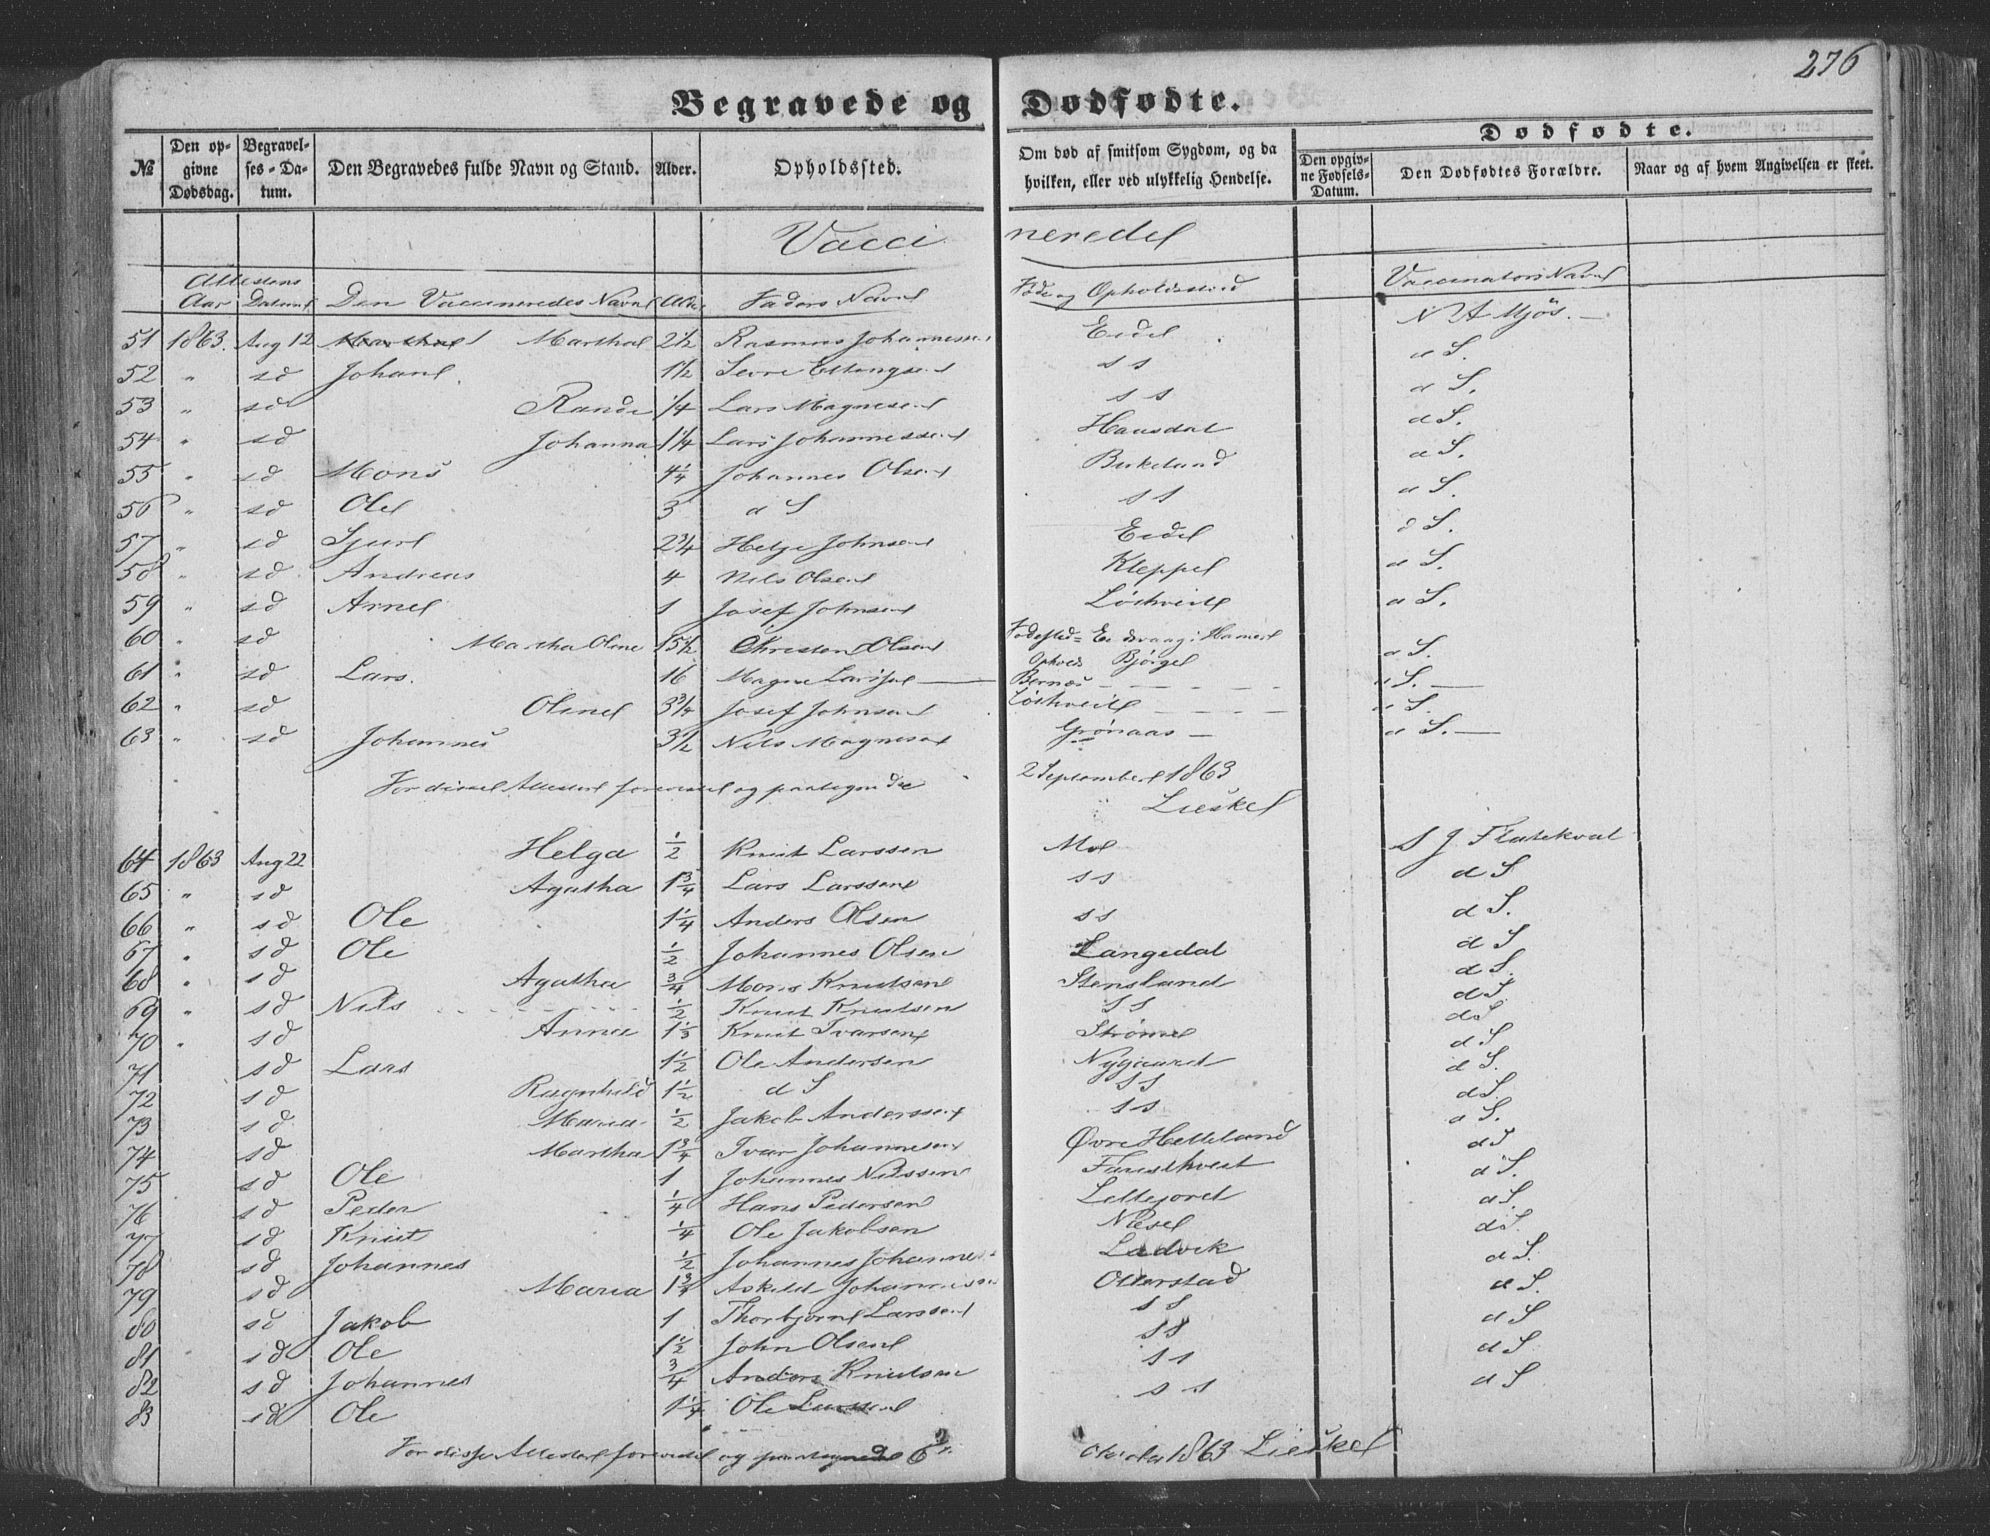 276
Begravede og Dødfødte.
№ Den opgivne Dødsdag. Begravelses-Datum. Den Begravedes fulde Navn og Stand. Alder. Opholdssted. Om død af smitsom Sygdom, og da hvilken, eller ved ulykkelig Hendelse. Dødfødte. Den opgivne Fødsels-Datum. Den Dødfødtes Forældre. Naar og af hvem Angivelsen er skeet.
Vaccineredel
Attestens
Aar Datum Den Vaccineredes Navn Alder Faders Navn Føde og Opholdssted Vaccinators Navn
51 1863. Aug 12 Marthal 2½ Rasmus Johannessen Eidel N A Mjøs.
52 " sd Johanl 1½ Sevre Ellingsen s s d S.
53 " sd Rande ¼ Lars Magnesen s s d S.
54 " sd Johanna 1¼ Lars Johannessen Hausdal d S.
55 " sd Mons 4¼ Johannes Olsen Birkeland d S.
56 " sd Olel 3 d S s s d S.
57 " sd Sjurl 2¾ Helje Johnsen Eidel d S.
58 " sd Andreas 4 Nils Olsen Kleppel d S.
59 " sd Arnel 1 Josef Johnsen Løtveitl d S.
60 " sd Martha Oline 15½ Christen Olsen Fødested = Eidsvaag i Hamerl
Ophold Bjørgel d S.
61 " sd Lars. 16 Magne Larssen Bernæs d S.
62 " sd Olinel 3¾ Josef Johnsen Løtveitl d S.
63 " sd Johannes 3½ Nils Magnesen Grønaas d S.
For dissel Attester forevistel og paategnede 2 Septemberl 1863
Lieskel
64 1863 Aug 22 Helga ½ Knut Larssen Mel S J Flatekval
65 " sd Agatha 1¾ Lars Larssen s s d S
66 " sd Ole 1¼ Anders Olsen s s d S.
67 " sd Ole ½ Johannes Olsen Langedal d S
68 " sd Agatha ¾ Mons Knutsen Stensland d S.
69 " sd Nils ½ Knut Knutsen s s d S.
70 " sd Anna 1⅓ Knut Ivarsen Strømel d S.
71 sd Lars 1½ Ole Andersen Nygaard d S
72 sd Ragnhild 1½ d S s s d S.
73 sd Maria ½ Jakob Anderssen s s d S.
74 sd Martha 1¾ Ivar Johannesen Øvre Helleland d S.
75 sd Ole 1 Johannes Nilssen d S
76 sd Peder ¼ Hans Pedersen d S.
77 sd Knut ¼ Ole Jakobsen Næsel d S.
78 sd Johannes ½ Johannes Johannes Ladvik d S.
79 sd Maria 1¾ Askild Johannesen Otterstad d S.
80 sd Jakob 1 Thorbjørn Larssen s s d S.
81 sd Ole 1½ John Olsen s s d S
82 sd Johannes ¾ Anders Knutsen s s d S
83 sd Ole 1¼ Ole Larssen s s d S
For disse Attester forevistel og paategnede 6 Oktober 1863 Lieskel